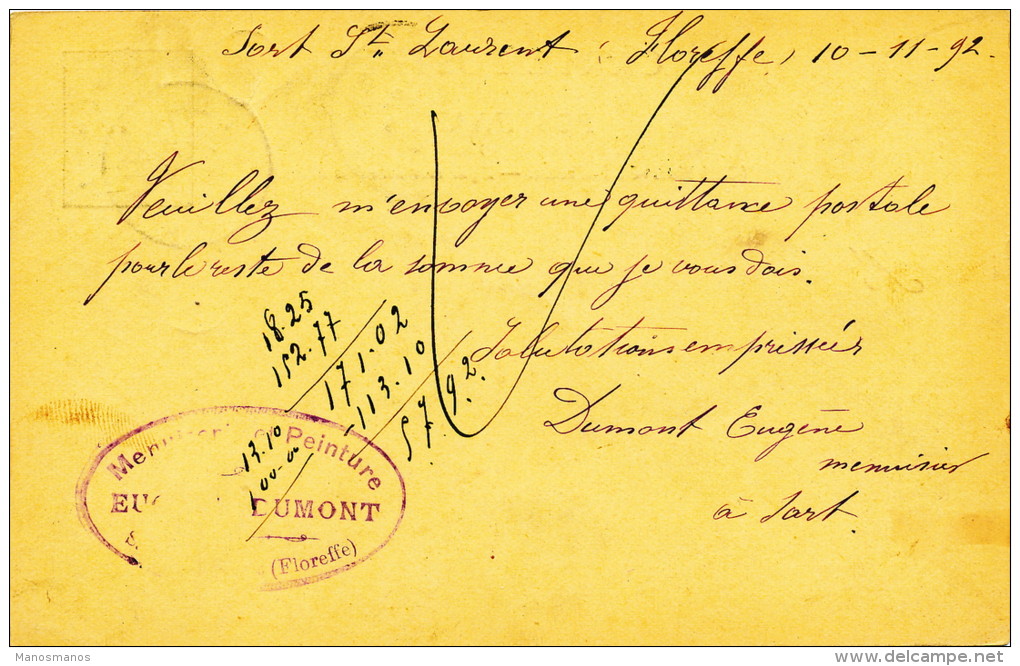 Sart St Laurent (Floreffe) 10-11-92.
Veuillez m'envoyer une quittance postale
pour le reste de la somme que je vous dois.
Salutations empressées
Dumont Eugène
menuisier
à Sart.
18.25
152.77
171.02
113.10
57.92.
13.10
100-00
Peinture
DUMONT
(Floreffe)
Manosmanos
delcampe.net